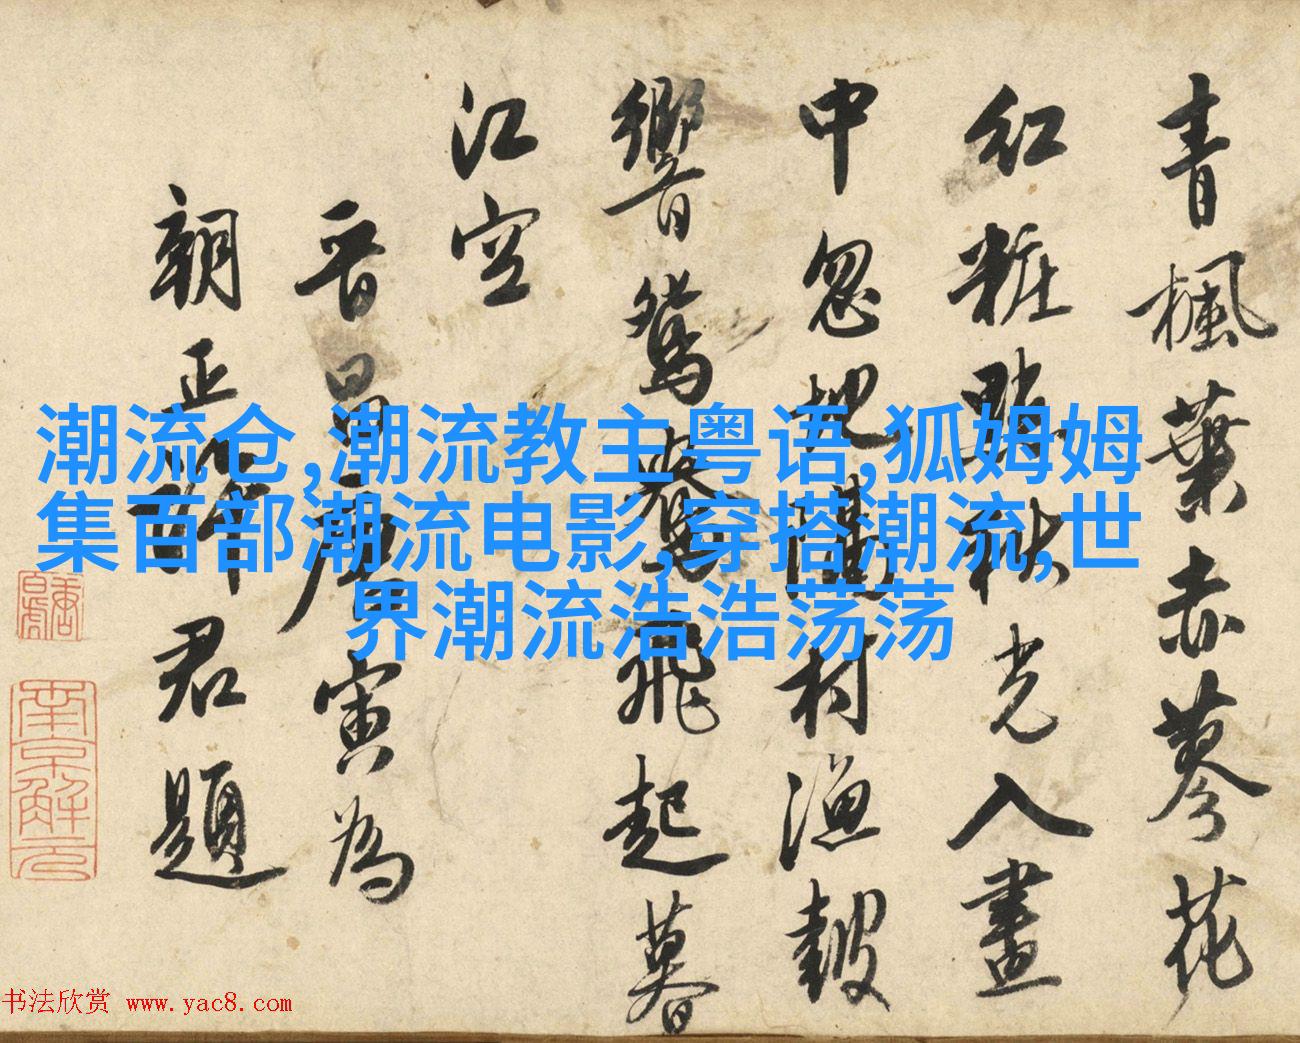 青楓葉赤蓼花
紅粧點秋光入畫
中忽地隔村漁鼓
響鴛鴦飛起暮
江空
晋昌唐寅為
朝正君題
南京解元
潮流仓,潮流教主粤语,狐姆姆
集百部潮流电影,穿搭潮流,世
界潮流浩浩荡荡
书法欣赏 www.yac8.com